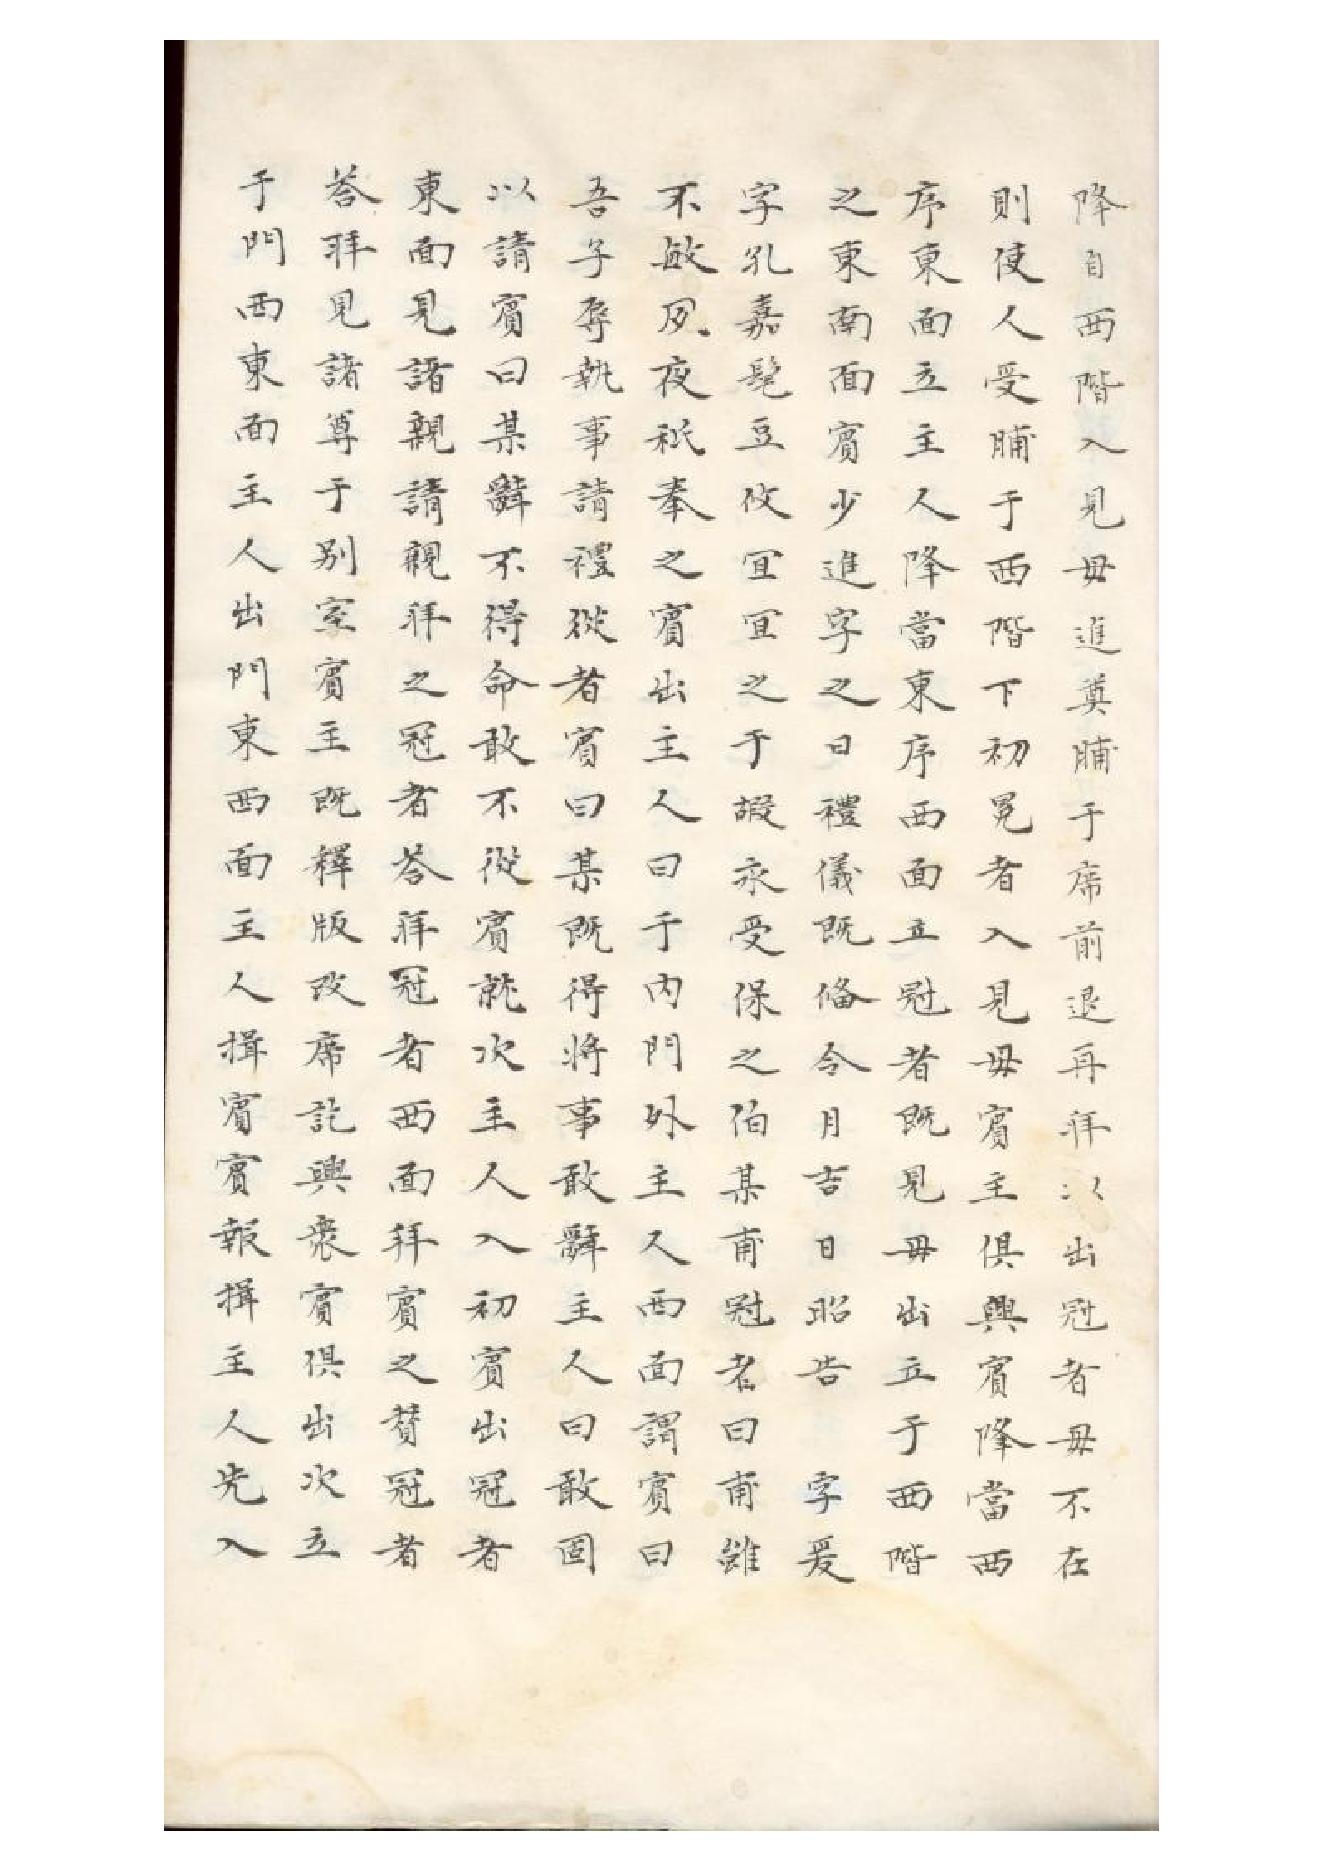 降自西階入見毋進奠脯于席前退再拜以出冠者毋不在
則使人受脯于西階下初冕者入見毋賓主俱興賓降當西
序東面立主人降當東序西面立冠者既見毋出立于西階
之東南面賓少進字之曰禮儀既俻令月吉日昭告　字爰
字孔嘉髦豆攸宜宜之于嘏永受保之伯某甫冠者曰甫雖
不敏夙夜祇奉之賓出主人曰于內門外主人西面謂賓曰
吾子辱執事請禮從者賓曰某既得將事敢辭主人曰敢固
以請賓曰某辭不得命敢不從賓就次主人入初賓出冠者
東面見諸親請親拜之冠者荅拜冠者西面拜賓之賛冠者
荅拜見諸尊于别室賓主既釋版改席訖興衆賓俱出次立
于門西東面主人出門東西面主人揖賓賓報揖主人先入